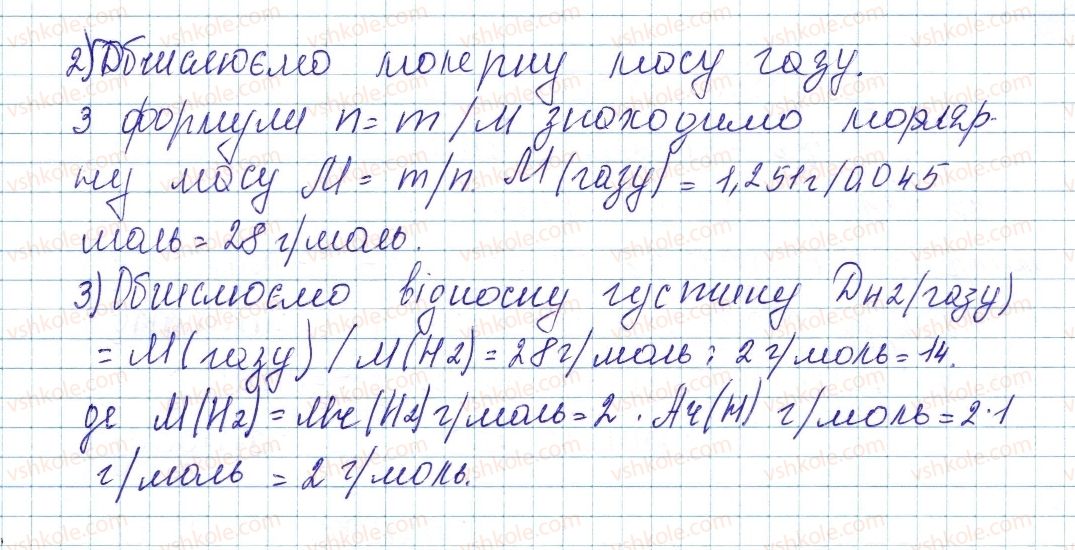 2) Обчислюємо молярну масу газу.
З формули n = m/M знаходимо моляр-
ну масу M = m/n M(газу) = 1,251г/0,045
моль = 28 г/моль.
3) Обчислюємо відносну густину DH2(газу)
= M(газу) / M(H2) = 28г/моль : 2 г/моль = 14.
де M(H2) = Mr(H2) г/моль = 2 · Ar(H) г/моль = 2·1
г/моль = 2 г/моль.